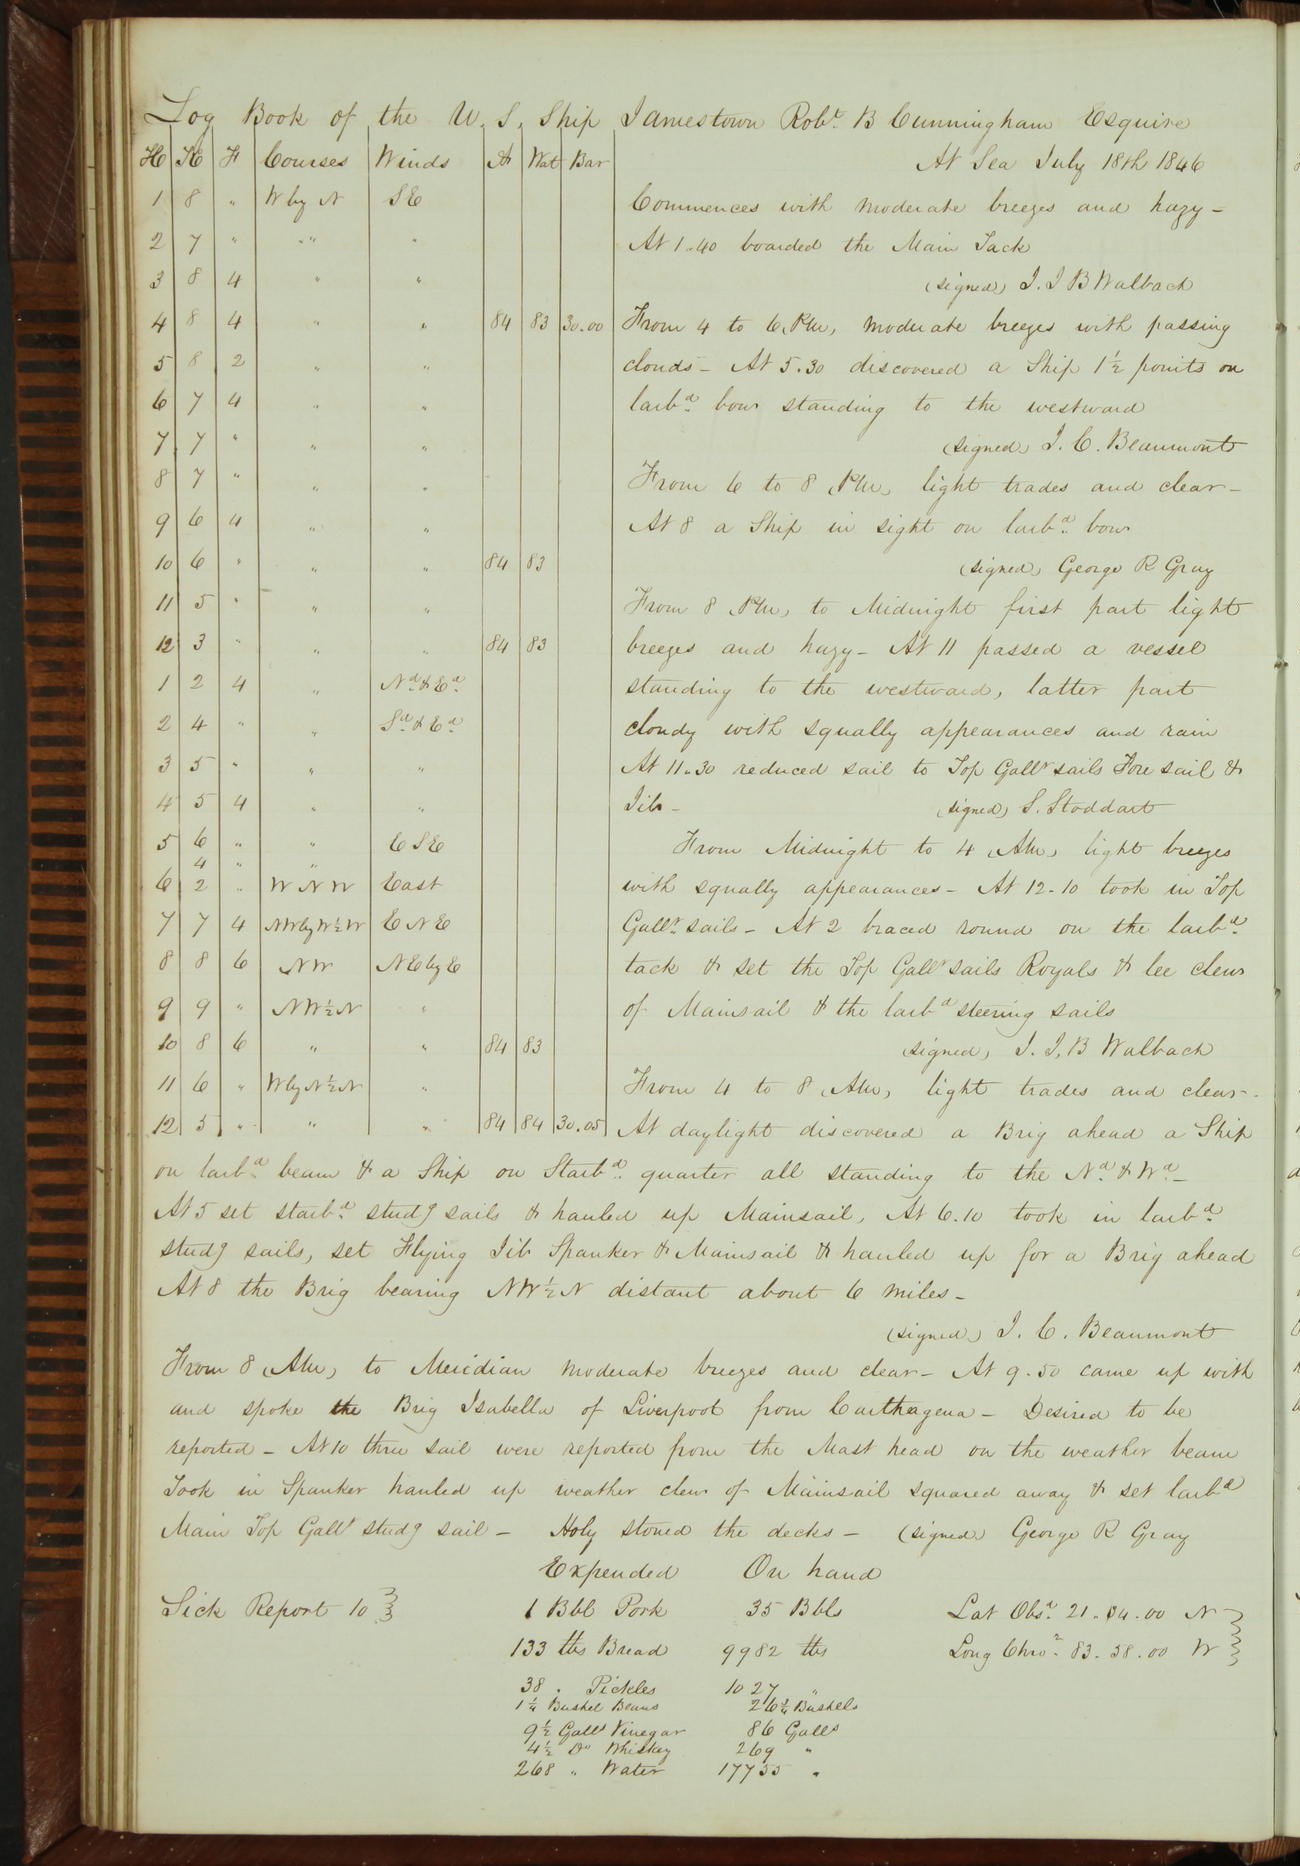 Log Book of the U. S. Ship Jamestown Robt. B Cunningham Esquire
H K F Courses Winds A Wat Bar At Sea July 18th 1846
1 8 " W by N S E Commences with moderate breezes and hazy -
2 7 " " " " At 1.40 boarded the Main Tack
3 8 4 " " (signed) J. J B Walbach
4 8 4 " " 84 83 30.00 From 4 to 6 PM, moderate breezes with passing
5 8 2 " " clouds - At 5.30 discovered a Ship 1½ points on
6 7 4 " " larbd bow standing to the westward
7 7 " " " (signed) J. C. Beaumont
8 7 " " " From 6 to 8 PM, light trades and clear -
9 6 4 " " At 8 a Ship in sight on larbd. bow
10 6 " " " 84 83 (signed) George R Gray
11 5 " " " From 8 PM, to Midnight first part light
12 3 " " " 84 83 breezes and hazy - At 11 passed a vessel
1 2 4 " Nd & Ed. standing to the westward, latter part
2 4 " " Sd & Ed. cloudy with squally appearances and rain
3 5 " " " At 11.30 reduced sail to Top Gallt sails Fore sail &
4 5 4 " " Jib - (signed) S. Stoddart
5 6 " " E S E From Midnight to 4 AM, light breezes
4 " "
6 2 " W N W East with squally appearances - At 12.10 took in Top
7 7 4 NW by W ½ W E N E Gallt. sails - At 2 braced round on the larbd.
8 8 6 N W N E by E tack & set the Top Gallt sails Royals & lee clew
9 9 " N W ½ N " of Mainsail & the larbd steering sails
10 8 6 " " 84 83 (signed) J. J. B Walbach
11 6 " W by N ½ N " From 4 to 8 AM, light trades and clear -
12 5 " " " 84 84 30.05 At daylight discovered a Brig ahead a Ship
on larbd beam & a Ship on Starbd. quarter all standing to the Nd. & Wd. -
At 5 set starbd. studg sails & hauled up Mainsail, At 6.10 took in larbd.
studg sails, set Flying Jib Spanker & Mainsail & hauled up for a Brig ahead
At 8 the Brig bearing NW ½ N distant about 6 miles -
(signed) J. C. Beaumont
From 8 AM, to Meridian moderate breezes and clear - At 9.50 came up with
and spoke the Brig Isabella of Liverpool from Carthagena - Desired to be
reported - At 10 three sail were reported from the Mast head on the weather beam
Took in Spanker hauled up weather clew of Mainsail squared away & set larbd
Main Top Gallt studg sail - Holy stoned the decks - (signed) George R Gray
Expended On hand
Sick Report 10 1 Bbl Pork 35 Bbls Lat Obsd. 21.04.00 N
133 lbs Bread 9982 lbs Long Chro. 83.58.00 W
38 " Pickles 1027 "
1¼ Bushel Beans 26¾ Bushels
9½ Galls Vinegar 86 Galls
4½ Do Whiskey 269 "
268 " Water 17755 "